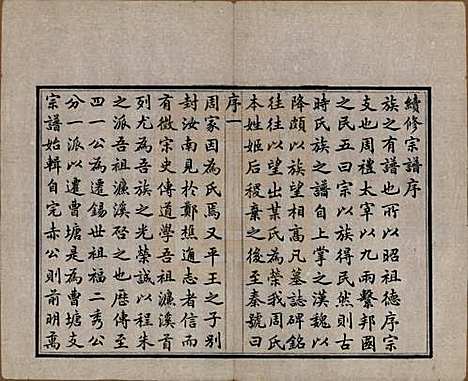 續修宗譜序
族之有譜也所以昭祖德序宗
支也周禮太宰以九兩繫邦國
之民五曰宗以族得民然則古
時氏族之譜自上掌之漢魏以
降頗以族望相高凡墓誌碑銘
往往以望出葉氏為榮我周氏
本姓姬后稷棄之後至秦號曰
序一
周家因為氏焉又平王之子別
封汝南見於鄭樵通志者信而
有徵宋史傳道學吾祖濂溪首
列尤為吾族之光榮誠以程朱
之派吾祖濂溪啓之也歷傳至
四一公為遷錫世祖福二秀公
分一派以遷曹塘是為曹塘支
宗譜始輯自完赤公則前明萬